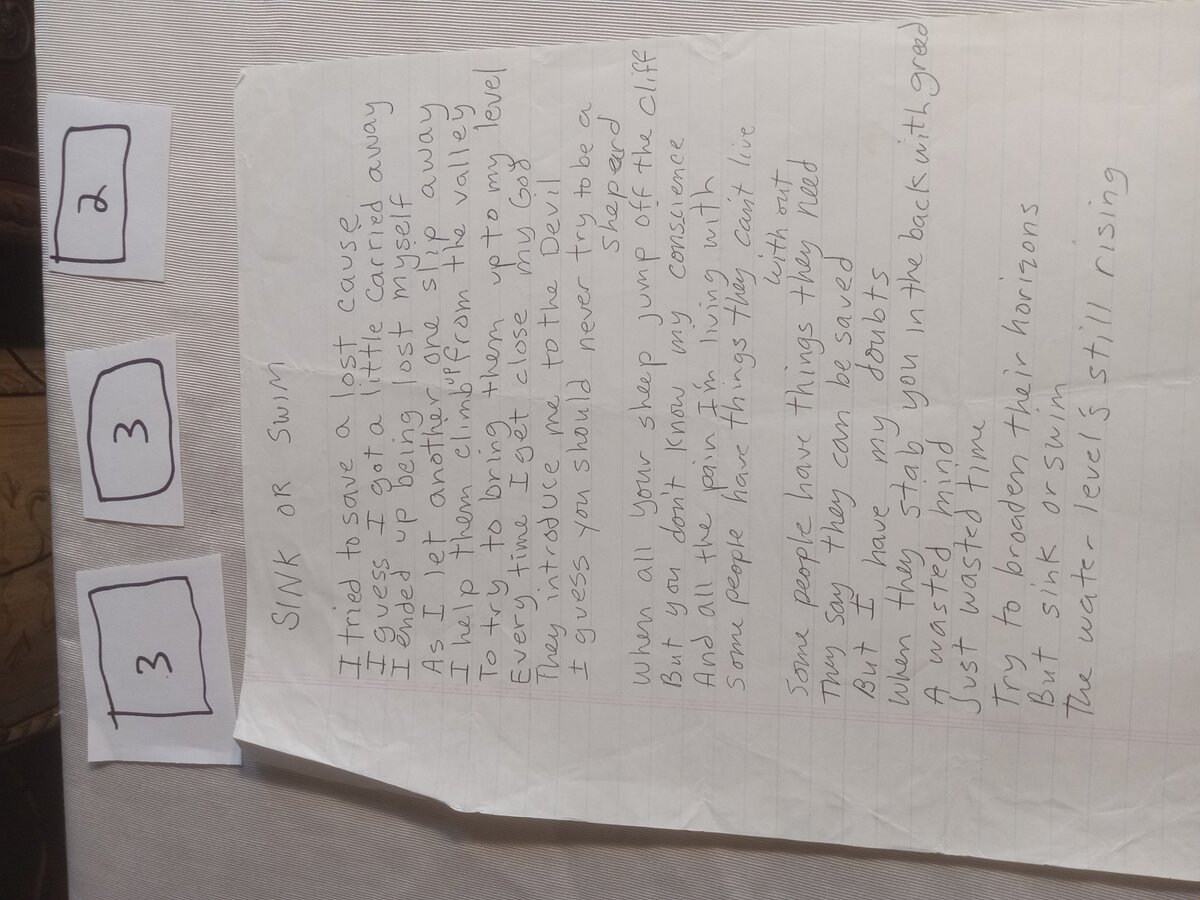 3
3
2
SINK OR SWIM
I tried to save a lost cause
I guess I got a little carried away
I ended up being lost myself
As I let another one slip away
I help them climb up from the valley
To try to bring them up to my level
Every time I get close my God
They introduce me to the Devil
I guess you should never try to be a
sheperd
When all your sheep jump off the cliff
But you don't know my conscience
And all the pain I'm living with
Some people have things they can't live
with out
Some people have things they need
They say they can be saved
But I have my doubts
When they stab you in the back with greed
A wasted mind
Just wasted time
Try to broaden their horizons
But sink or swim
The water level's still rising